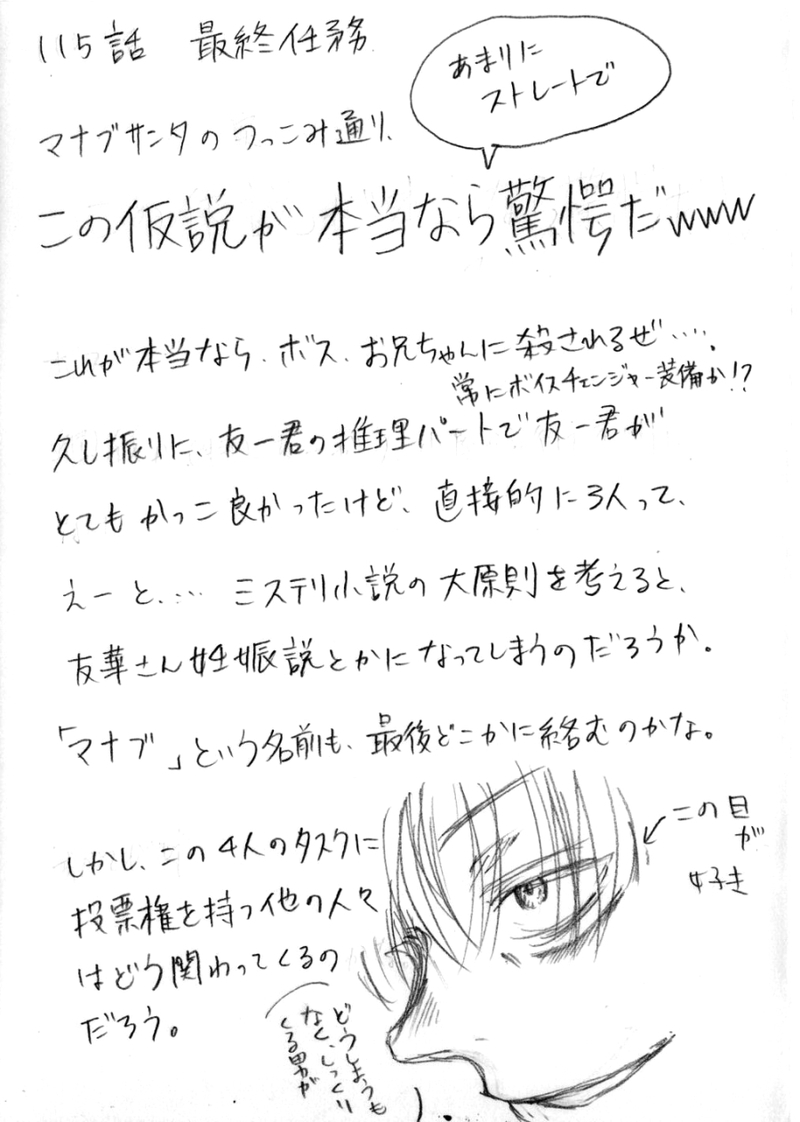 115話 最終任務
あまりに
ストレートで
マナブサンタのつっこみ通り、
この仮説が本当なら驚愕だwww
これが本当なら、ボス、お兄ちゃんに殺されるぜ‥‥。
常にボイスチェンジャー装備か!?
久し振りに、友一君の推理パートで友一君が
とてもかっこ良かったけど、直接的に3人って、
えーと、‥‥ ミステリ小説の大原則を考えると、
友華さん妊娠説とかになってしまうのだろうか。
「マナブ」という名前も、最後どこかに絡むのかな。
しかし、この4人のタスクに
投票権を持つ他の人々
はどう関わってくるの
だろう。
この目
が
好き
どうしようも
なく、しっくり
くる男が